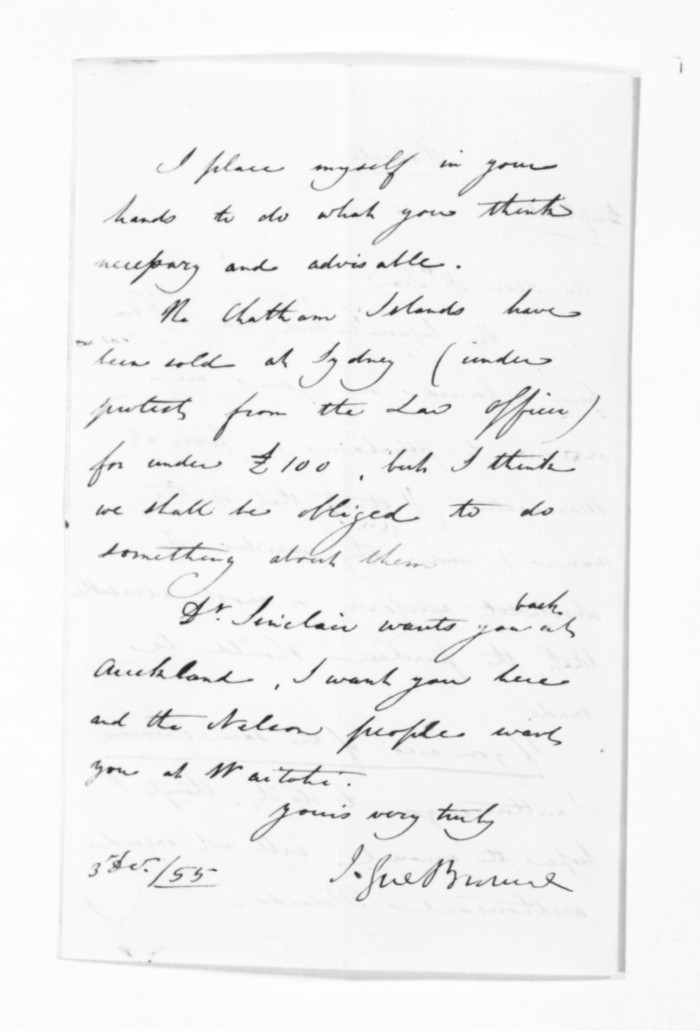 I place myself in your
hands to do what you think
necessary and advisable.
The Chatham Islands have
been sold at Sydney (under
protest from the Law Officer)
for under £100, but I think
we shall be obliged to do
something about them
Dr. Sinclair wants you back at
Auckland, I want you here
and the Nelson people want
you at Waitohi.
yours very truly
T. Gore Browne
3d Dec./55